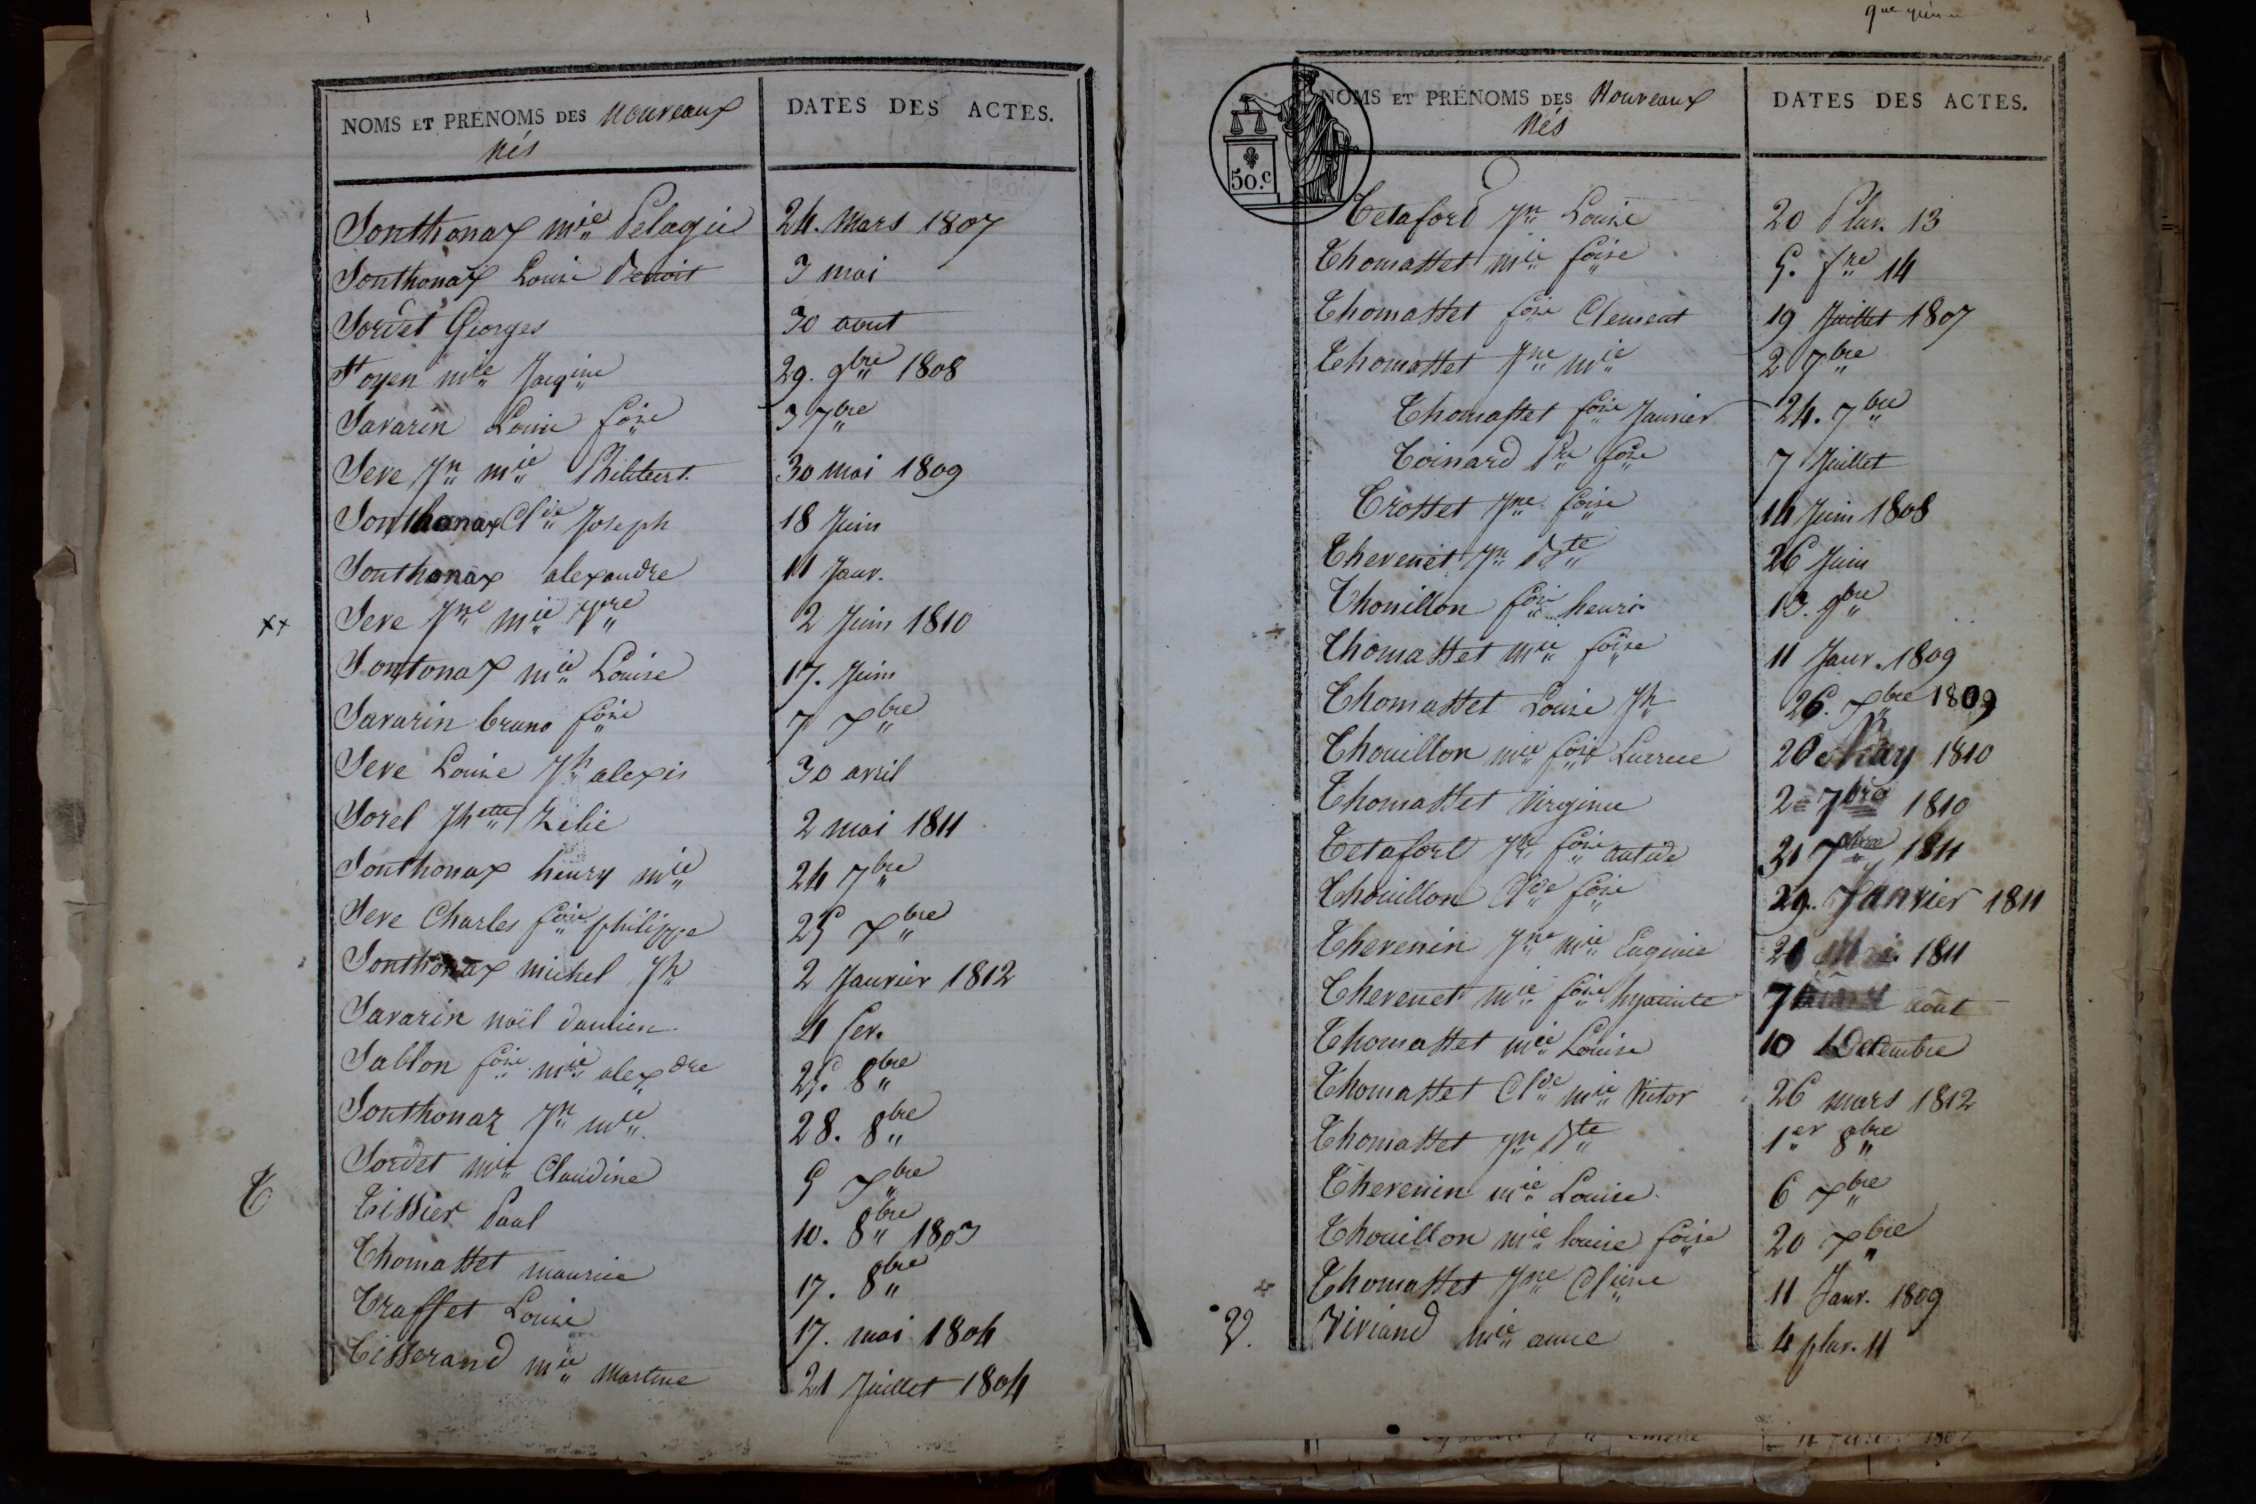 NOMS ET PRÉNOMS DES nouveaux
nés
DATES DES ACTES.
Sonthonax mie Pelagie 24. Mars 1807
Sonthonax Louise Benoit 3 mai
Sordet Georges 30 aout
Foyen mie Jacqine 29. 9bre 1808
Savarin Louise foise 3 7bre
Seve Jn mie Philibert. 30 mai 1809
Sonthonax Clde Joseph 18 Juin
Sonthonax alexandre 11 Janv.
xx Seve Jne mie Pre 2 Juin 1810
Sontonax mie Louise 17. Juin
Savarin bruno foise 7 Xbre
Seve Louise Jh alexis 30 avril
Sorel Jhette Zélie 2 mai 1811
Sonthonax henry mie 24 7bre
Seve Charles foise philippe 25 Xbre
Sonthonax michel Jh 2 Janvier 1812
Savarin noël damien 4 fev.
Sablon foise mie alexdre 25. 8bre
Sonthonaz Jn mie 28. 8bre
Sordet mie Claudine 5 Xbre
T Tissier Paul 10. 8bre 1803
Thomasset maurice 17. 8bre
Traffet Louise 17. mai 1804
Tisserand mie martine 21 Juillet 1804
NOMS ET PRÉNOMS DES Nouveaux
Nés
DATES DES ACTES.
50.c
Tetaford Jn Louise 20 Pluv. 13
Thomasset mie foise 5. fre 14
Thomasset foise Clement 19 Juillet 1807
Thomasset Jne mie 2 7bre
Thomasset foise Janvier 24. 7bre
Toinard Pre foise 7 Juillet
Trosset Jne foise 14 Juin 1808
Thevenet Jn Bte 26 Juin
Thouillon foise henri 13. 9bre
Thomasset mie foise 11 Janv. 1809
Thomasset Louise Jh 26. Xbre 1809
Thouillon mie foise Lucrece 20 May 1810
Thomasset Virginie 2 7bre 1810
Tetafort Jne foise 21 7bre 1811
Thouillon Clde foise 29. Janvier 1811
Thevenin Jne mie Eugenie 1811
Thevenet mie foise hyacinte 7 aout
Thomasset mie Louise 10 Decembre
Thomasset Clde mie Victor 26 mars 1812
Thomasset Jn Bte 1er 8bre
Thevenin mie Louise 6 Xbre
Thouillon mie louise foise 20 Xbre
Thomasset Jne Cl 11 Janv. 1809
V. Viviand mie anne 4 pluv. 11